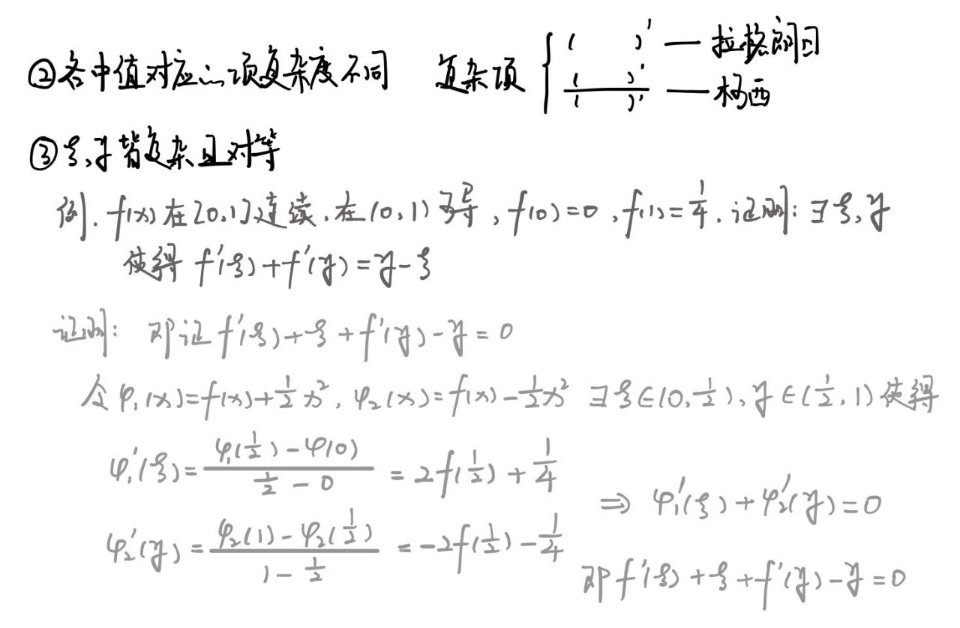 ②各中值对应的项复杂度不同 复杂项 { ( )' — 拉格朗日
( )' / ( )' — 柯西
③ξ,η皆复杂且对等
例. f(x)在[0,1]连续,在(0,1)可导,f(0)=0,f(1)=1/4.证明:∃ξ,η
使得 f'(ξ)+f'(η)=η-ξ
证明: 即证 f'(ξ)+ξ+f'(η)-η=0
令φ₁(x)=f(x)+½x², φ₂(x)=f(x)-½x² ∃ξ∈(0,½),η∈(½,1)使得
φ₁'(ξ)=(φ₁(½)-φ(0))/(½-0)=2f(½)+¼
⇒ φ₁'(ξ)+φ₂'(η)=0
φ₂'(η)=(φ₂(1)-φ₂(½))/(1-½)=-2f(½)-¼
即f'(ξ)+ξ+f'(η)-η=0